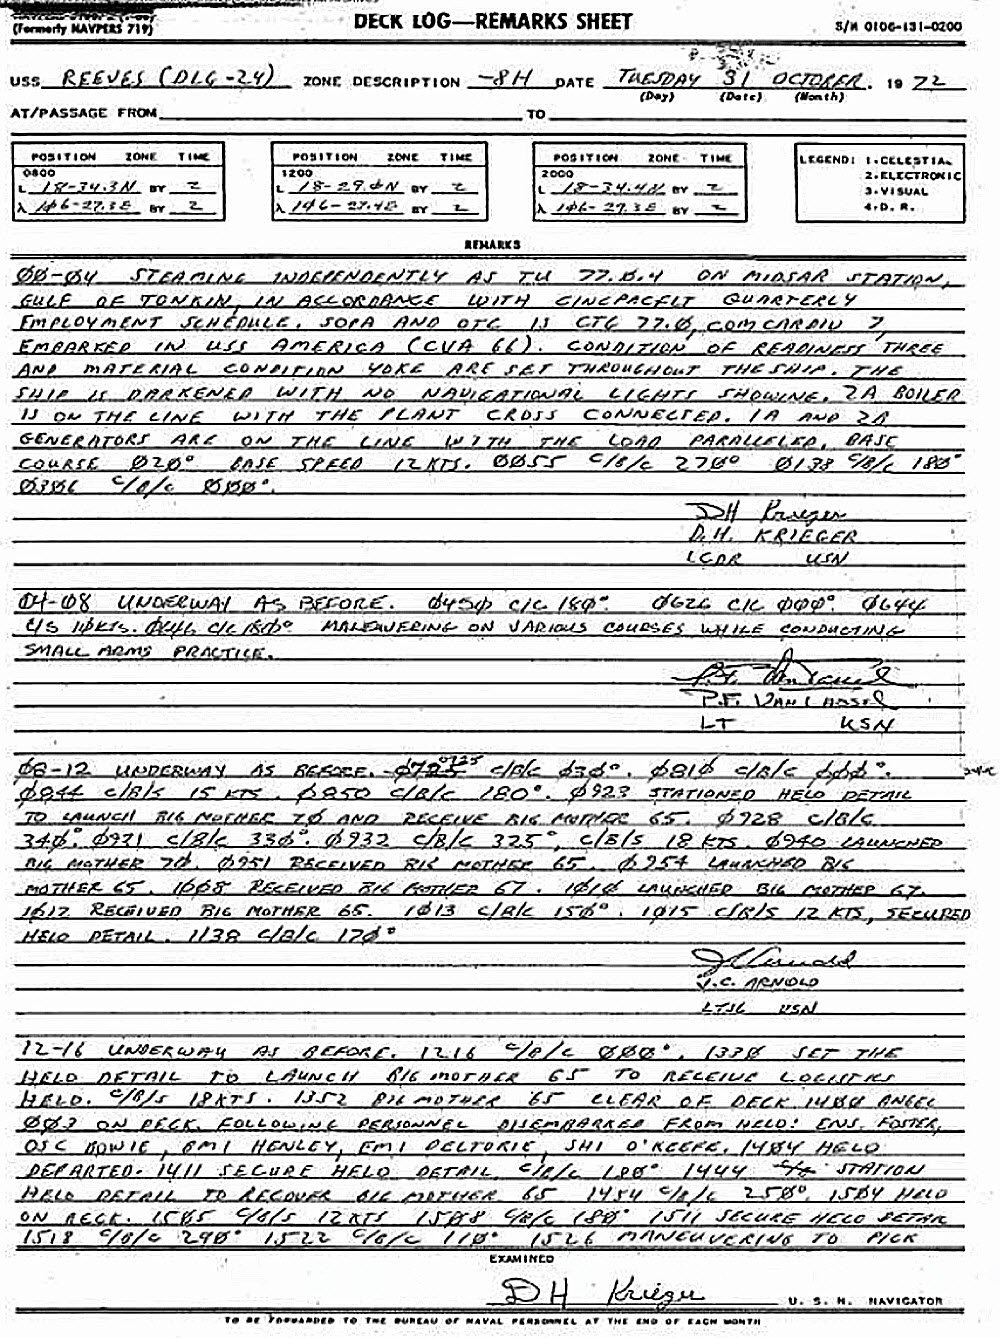 (Formerly NAVPERS 719)
DECK LOG—REMARKS SHEET
S/N 0106-131-0200
USS REEVES (DLG-24) ZONE DESCRIPTION -8H DATE TUESDAY 31 OCTOBER, 19 72
(Day) (Date) (Month)
AT/PASSAGE FROM TO
POSITION ZONE TIME
0800
L 18-34.3N BY 2
λ 1Ø6-27.3E BY 2
POSITION ZONE TIME
1200
L 18-29.ØN BY 2
λ 1Ø6-27.4E BY 2
POSITION ZONE TIME
2000
L 18-34.4N BY 2
λ 1Ø6-27.3E BY 2
LEGEND: 1-CELESTIAL
2-ELECTRONIC
3-VISUAL
4-D. R.
REMARKS
ØØ-Ø4 STEAMING INDEPENDENTLY AS TU 77.Ø.4 ON MIDSAR STATION,
GULF OF TONKIN, IN ACCORDANCE WITH CINCPACFLT QUARTERLY
EMPLOYMENT SCHEDULE. SOPA AND OTC IS CTG 77.Ø, COMCARDIV 7,
EMBARKED IN USS AMERICA (CVA 66). CONDITION OF READINESS THREE
AND MATERIAL CONDITION YOKE ARE SET THROUGHOUT THE SHIP. THE
SHIP IS DARKENED WITH NO NAVIGATIONAL LIGHTS SHOWING. 2A BOILER
IS ON THE LINE WITH THE PLANT CROSS CONNECTED. 1A AND 2A
GENERATORS ARE ON THE LINE WITH THE LOAD PARALLELED. BASE
COURSE Ø2Ø° BASE SPEED 12KTS. ØØ55 C/B/C 27Ø° Ø138 C/B/C 18Ø°
Ø3Ø6 C/B/C ØØØ°.
DH Krieger
D.H. KRIEGER
LCDR USN
Ø4-Ø8 UNDERWAY AS BEFORE. Ø45Ø C/C 18Ø°. Ø626 C/C ØØØ°. Ø644
C/S 1ØKTS. Ø646 C/C 18Ø°. MANEUVERING ON VARIOUS COURSES WHILE CONDUCTING
SMALL ARMS PRACTICE.
P.F.
LT USN
Ø8-12 UNDERWAY AS BEFORE. Ø725 C/B/C Ø3Ø°. Ø81Ø C/B/C ØØØ°.
Ø844 C/B/S 15 KTS. Ø85Ø C/B/C 18Ø°. Ø923 STATIONED HELO DETAIL
TO LAUNCH BIG MOTHER 7Ø AND RECEIVE BIG MOTHER 65. Ø928 C/B/C
34Ø°. Ø931 C/B/C 33Ø°. Ø932 C/B/C 325°, C/B/S 18 KTS. Ø94Ø LAUNCHED
BIG MOTHER 7Ø. Ø951 RECEIVED BIG MOTHER 65. Ø954 LAUNCHED BIG
MOTHER 65. 1ØØ8 RECEIVED BIG MOTHER 67. 1Ø1Ø LAUNCHED BIG MOTHER 67.
1Ø12 RECEIVED BIG MOTHER 65. 1Ø13 C/B/C 15Ø°. 1Ø15 C/B/S 12 KTS, SECURED
HELO DETAIL. 1138 C/B/C 17Ø°
J.C. Arnold
J.C. ARNOLD
LTJG USN
12-16 UNDERWAY AS BEFORE. 1216 C/B/C ØØØ°. 133Ø SET THE
HELO DETAIL TO LAUNCH BIG MOTHER 65 TO RECEIVE LOGISTICS
HELO. C/B/S 18KTS. 1352 BIG MOTHER 65 CLEAR OF DECK 14ØØ ANGEL
ØØ3 ON DECK. FOLLOWING PERSONNEL DISEMBARKED FROM HELO: ENS. FOSTER,
OSC BOWIE, BM1 HENLEY, EM1 DELTORIE, SH1 O'KEEFE. 14Ø4 HELO
DEPARTED. 1411 SECURE HELO DETAIL C/B/C 18Ø° 1444 STATION
HELO DETAIL TO RECOVER BIG MOTHER 65 1454 C/B/C 25Ø°. 15Ø4 HELO
ON DECK. 15Ø5 C/B/S 12KTS 15Ø8 C/B/C 18Ø° 1511 SECURE HELO DETAIL
1518 C/B/C 29Ø° 1522 C/B/C 11Ø° 1526 MANEUVERING TO PICK
EXAMINED
DH Krieger U. S. N. NAVIGATOR
TO BE FORWARDED TO THE BUREAU OF NAVAL PERSONNEL AT THE END OF EACH MONTH